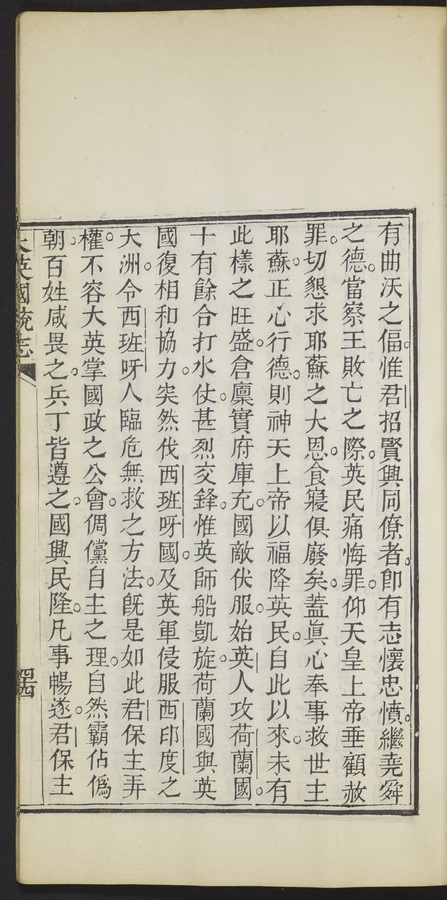 有曲沃之偪惟君招賢興同僚者卽有志懷忠憤繼堯舜
之德當察王敗亡之際英民痛悔罪仰天皇上帝垂顧赦
罪切懇求耶蘇之大恩食寢俱廢矣蓋眞心奉事救世主
耶蘇正心行德則神天上帝以福降英民自此以來未有
此樣之旺盛倉廩實府庫充國敵伏服始英人攻荷蘭國
十有餘合打水仗甚烈交鋒惟英師船凱旋荷蘭國與英
國復相和協力突然伐西班呀國及英軍侵服西印度之
大洲令西班呀人臨危無救之方法旣是如此君保主弄
權不容大英掌國政之公會倜儻自主之理自然霸佔僞
朝百姓咸畏之兵丁皆遵之國興民隆凡事暢遂君保主
大英國統志